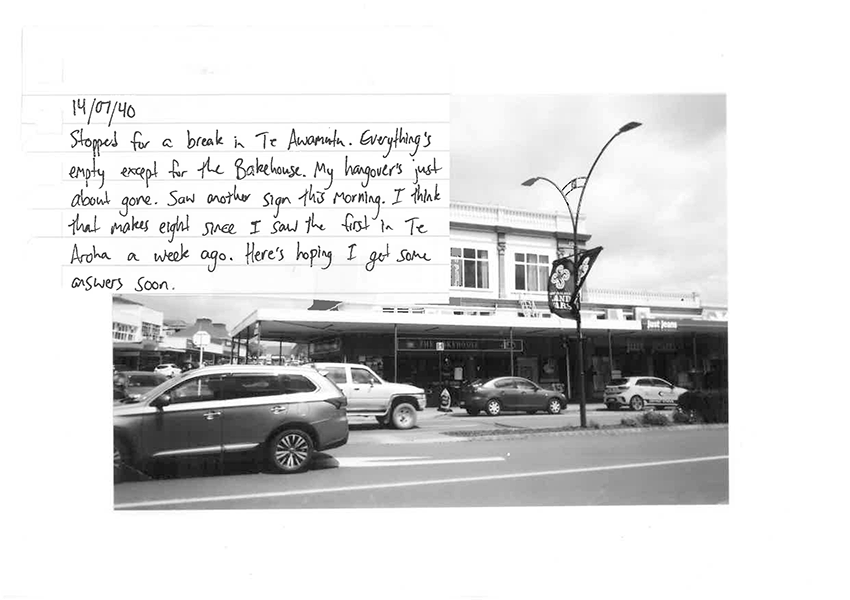 14/07/40
Stopped for a break in Te Awamutu. Everything's
empty except for the Bakehouse. My hangover's just
about gone. Saw another sign this morning. I think
that makes eight since I saw the first in Te
Aroha a week ago. Here's hoping I get some
answers soon.
LAND
WARS
THE
Just Jeans